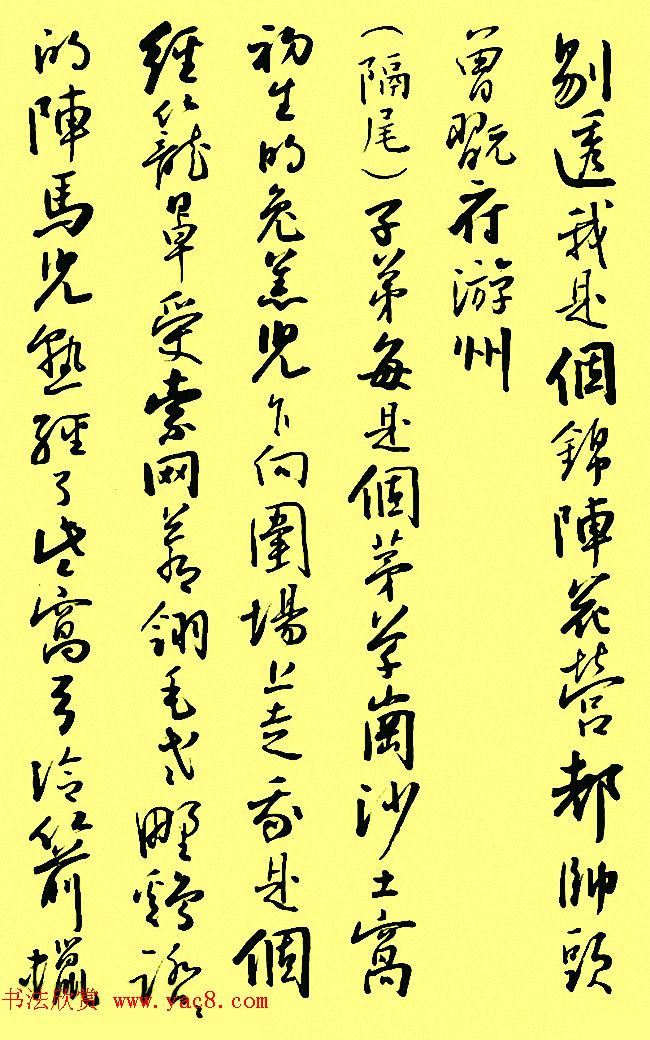 剔透我是個錦陣花營都帥頭
曾翫府游州
（隔尾）子弟每是個茅草崗沙土窩
初生的兔羔兒乍向圍場上走我是個
經籠罩受索网蒼翎毛老野鷄
的陣馬兒熟經了些窩弓冷箭蠟
书法欣赏 www.yac8.com